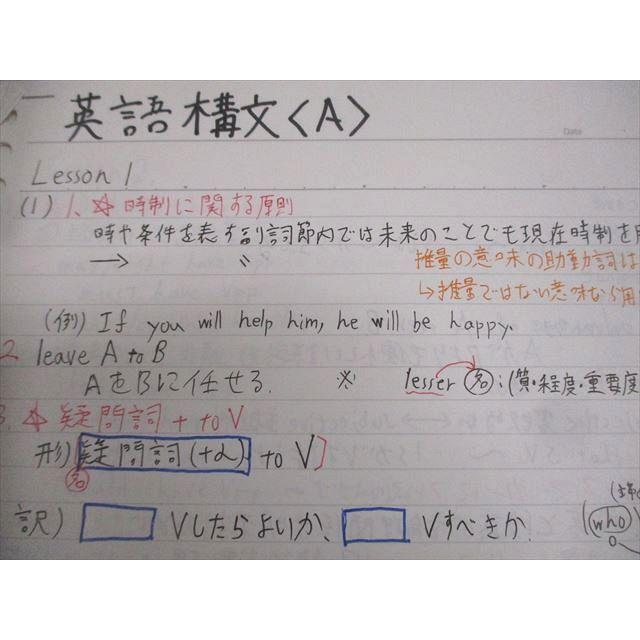 英語構文〈A〉
Date
Lesson 1
(1) 1. ☆ 時制に関する原則
時や条件を表す副詞節内では未来のことでも現在時制を用
→ 〃 推量の意味の助動詞は
↳推量ではない意味なら用
(例) If you will help him, he will be happy.
2. leave A to B
AをBに任せる. ※ lesser 名:(質・程度・重要度
3. ☆ 疑問詞 + to V
形) 疑問詞(+α) to V]
名
訳) Vしたらよいか、 Vすべきか
(who)